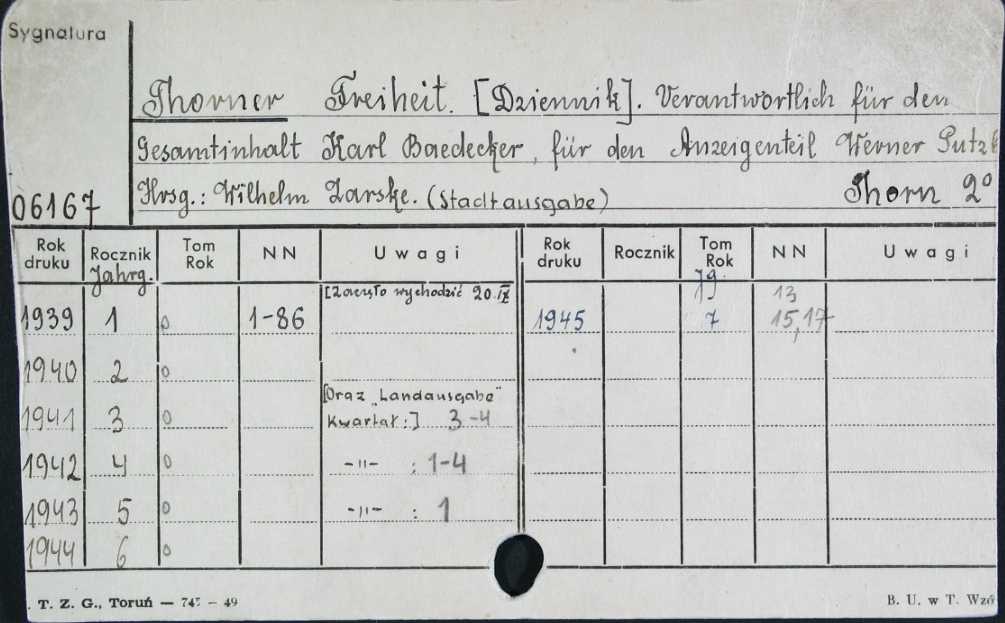 Sygnatura
Thorner Freiheit. [Dziennik]. Verantwortlich für den
Gesamtinhalt Karl Baedecker, für den Anzeigenteil Werner
Hrsg.: Wilhelm Zarske. (Stadtausgabe) Thorn 2°
06167
Rok druku Rocznik Tom Rok NN Uwagi Rok druku Rocznik Tom Rok NN Uwagi
Jahrg. Jg
[Zaczęło wychodzić 20.IX 13
1939 1 0 1-86 1945 7 15,17
1940 2 0
[Oraz "Landausgabe"
1941 3 0 kwartał:] 3-4
1942 4 0 -"- : 1-4
1943 5 0 -"- : 1
1944 6 0
. T. Z. G., Toruń — 745 – 49 B. U. w T. Wzó